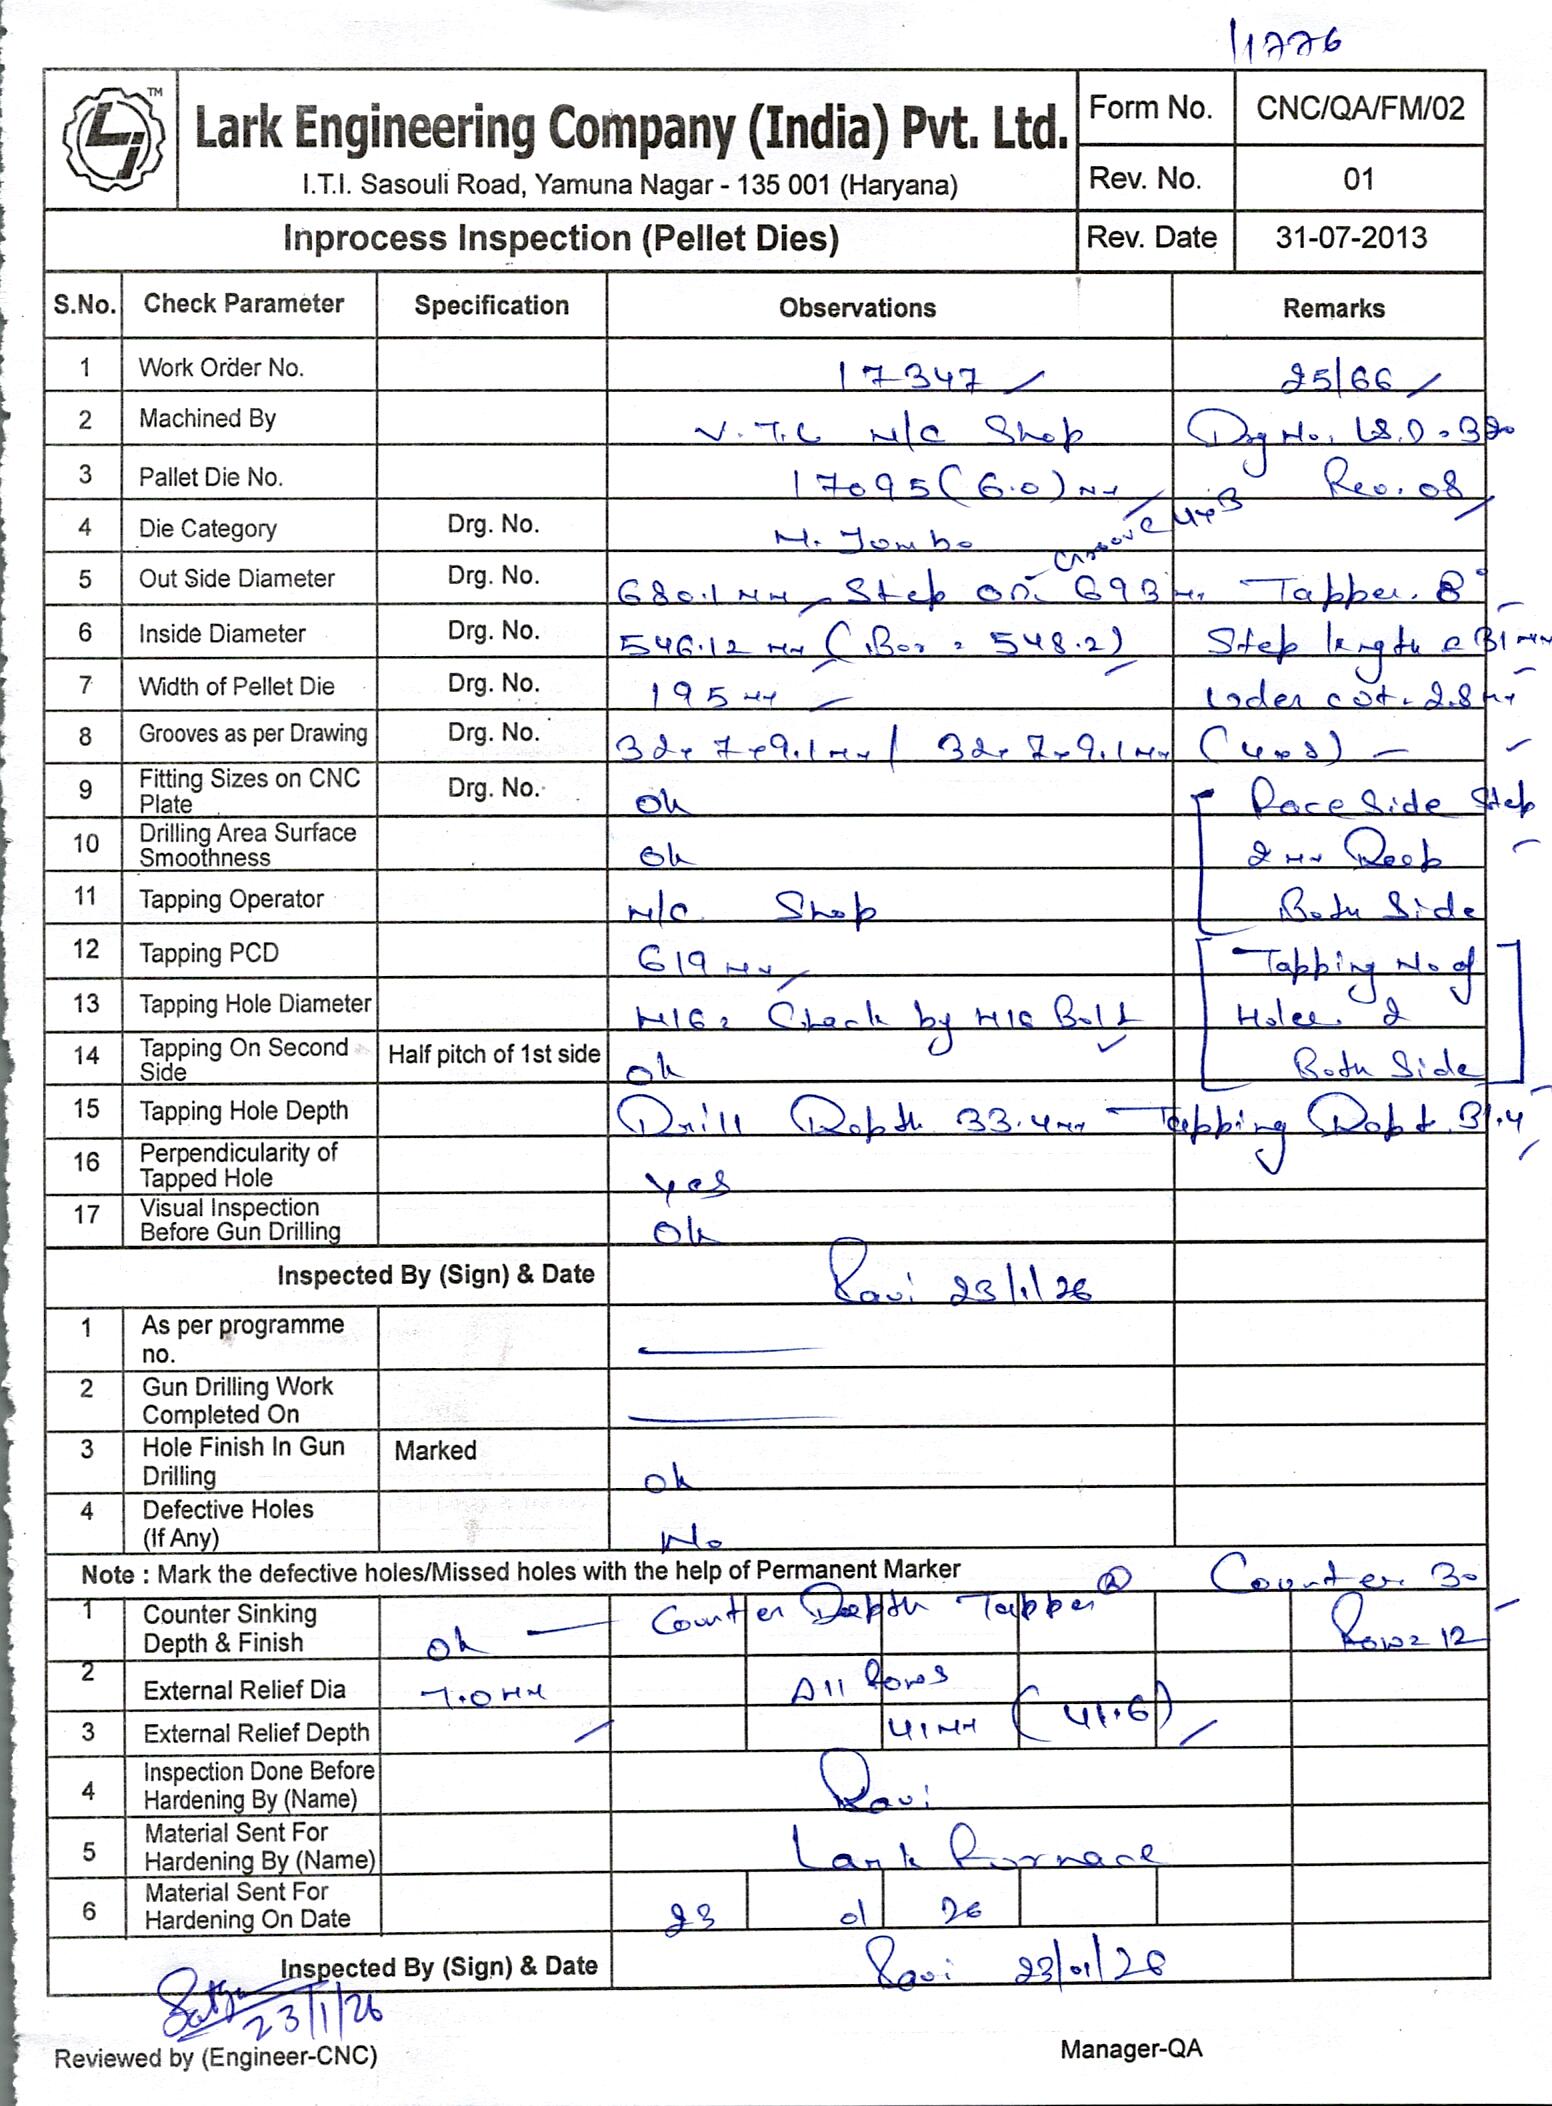 11776
TM
Lark Engineering Company (India) Pvt. Ltd.
I.T.I. Sasouli Road, Yamuna Nagar - 135 001 (Haryana)
Form No. CNC/QA/FM/02
Rev. No. 01
Inprocess Inspection (Pellet Dies) Rev. Date 31-07-2013
S.No. Check Parameter Specification Observations Remarks
1 Work Order No. 17347 25/66
2 Machined By V.T.L M/C Shop Drg No.
3 Pallet Die No. 17095 (6.0) mm Rev. 08
4 Die Category Drg. No. M. Jombo Groove
5 Out Side Diameter Drg. No. 680.1 mm Step OD. 693 mm Tapper. 8°
6 Inside Diameter Drg. No. 546.12 mm (Bor = 548.2) Step length = 31 mm
7 Width of Pellet Die Drg. No. 195 mm Under cot. 2.8 mm
8 Grooves as per Drawing Drg. No. 32x7x9.1mm / 32x7x9.1mm
9 Fitting Sizes on CNC Plate Drg. No. Ok Race Side Step
10 Drilling Area Surface Smoothness Ok 2 mm Deep
11 Tapping Operator M/C Shop Both Side
12 Tapping PCD 619 mm Tapping No of
13 Tapping Hole Diameter M16 = Check by M16 Bolt Holes 2
14 Tapping On Second Side Half pitch of 1st side Ok Both Side
15 Tapping Hole Depth Drill Depth 33.4mm Tapping Dept. 31.4
16 Perpendicularity of Tapped Hole Yes
17 Visual Inspection Before Gun Drilling Ok
Inspected By (Sign) & Date Ravi 23/1/26
1 As per programme no.
2 Gun Drilling Work Completed On
3 Hole Finish In Gun Drilling Marked Ok
4 Defective Holes (If Any) No
Note : Mark the defective holes/Missed holes with the help of Permanent Marker Counter. 30
1 Counter Sinking Depth & Finish Ok Counter Depth Tapper Row = 12
2 External Relief Dia 7.0 mm All Rows
3 External Relief Depth 41 mm (41.6)
4 Inspection Done Before Hardening By (Name) Ravi
5 Material Sent For Hardening By (Name) Lark Furnace
6 Material Sent For Hardening On Date 23 01 26
Inspected By (Sign) & Date Ravi 23/01/26
23/1/26
Reviewed by (Engineer-CNC) Manager-QA